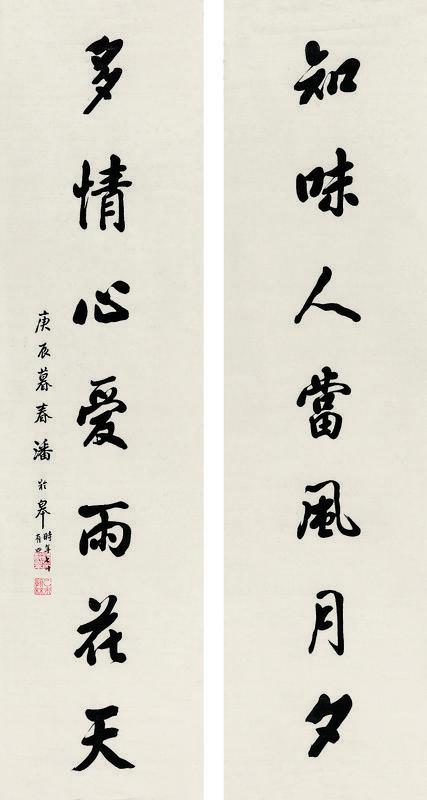 知味人當風月夕
多情心愛雨花天
庚辰暮春潘於皋
時年七十有四